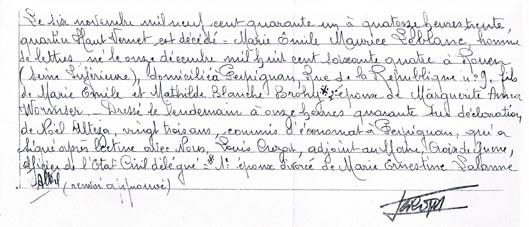 Le six novembre mil neuf cent quarante un à quatorze heures trente,
quartier Haut Vernet est décédé - Marie Emile Maurice Leblanc, homme
de lettres, né le onze décembre mil huit cent soixante quatre à Rouen
(Seine Inférieure), domicilié à Perpignan Rue de la République n° 9. fils
de Marie Emile et Mathilde Blanche Brohy * époux de Marguerite
Wormser - Dressé le lendemain à onze heures quarante sur déclaration
de Noël vingt trois ans, commis d'économat à Perpignan, qui a
signé après lecture avec Nous, Louis adjoint au Maire, Croix de guerre,
officier de l'Etat Civil délégué - * 1° époux divorcé de Marie Ernestine Lalanne
(renvoi approuvé)